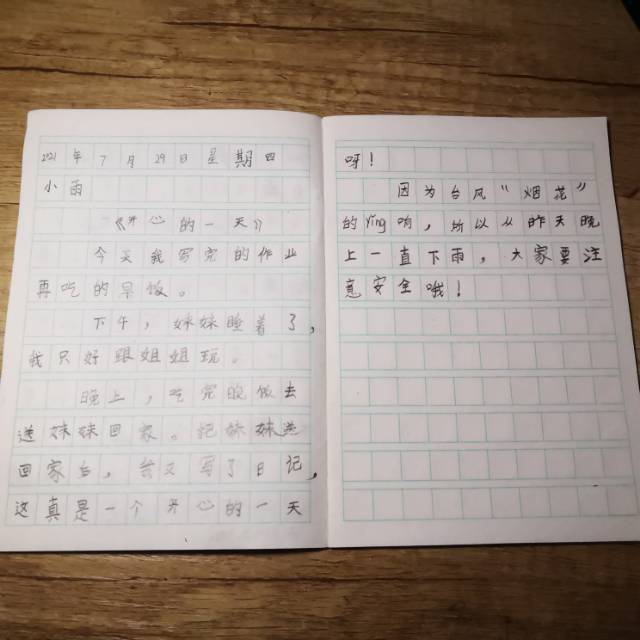 2021年7月29日星期四
小雨
《开心的一天》
今天我写完的作业
再吃的早饭。
下午，妹妹睡着了，
我只好跟姐姐玩。
晚上，吃完晚饭去
送妹妹回家。把妹妹送
回家后，我又写了日记，
这真是一个开心的一天
呀！
因为台风“烟花”
的ying响，所以从昨天晚
上一直下雨，大家要注
意安全哦！